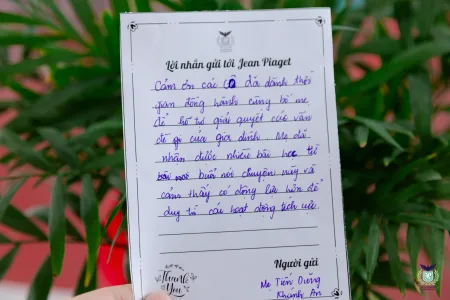 Lời nhắn gửi tới Jean Piaget
Cảm ơn các cô đã dành thời
gian đồng hành cùng bố mẹ
để hỗ trợ giải quyết các vấn
đề gì của gia đình. Mẹ đã
nhận được nhiều bài học từ
buổi nói chuyện này và
cảm thấy có động lực hơn để
duy trì các hoạt động tích cực.
Thank You
Người gửi
Mẹ Tiến Dũng
Khánh An